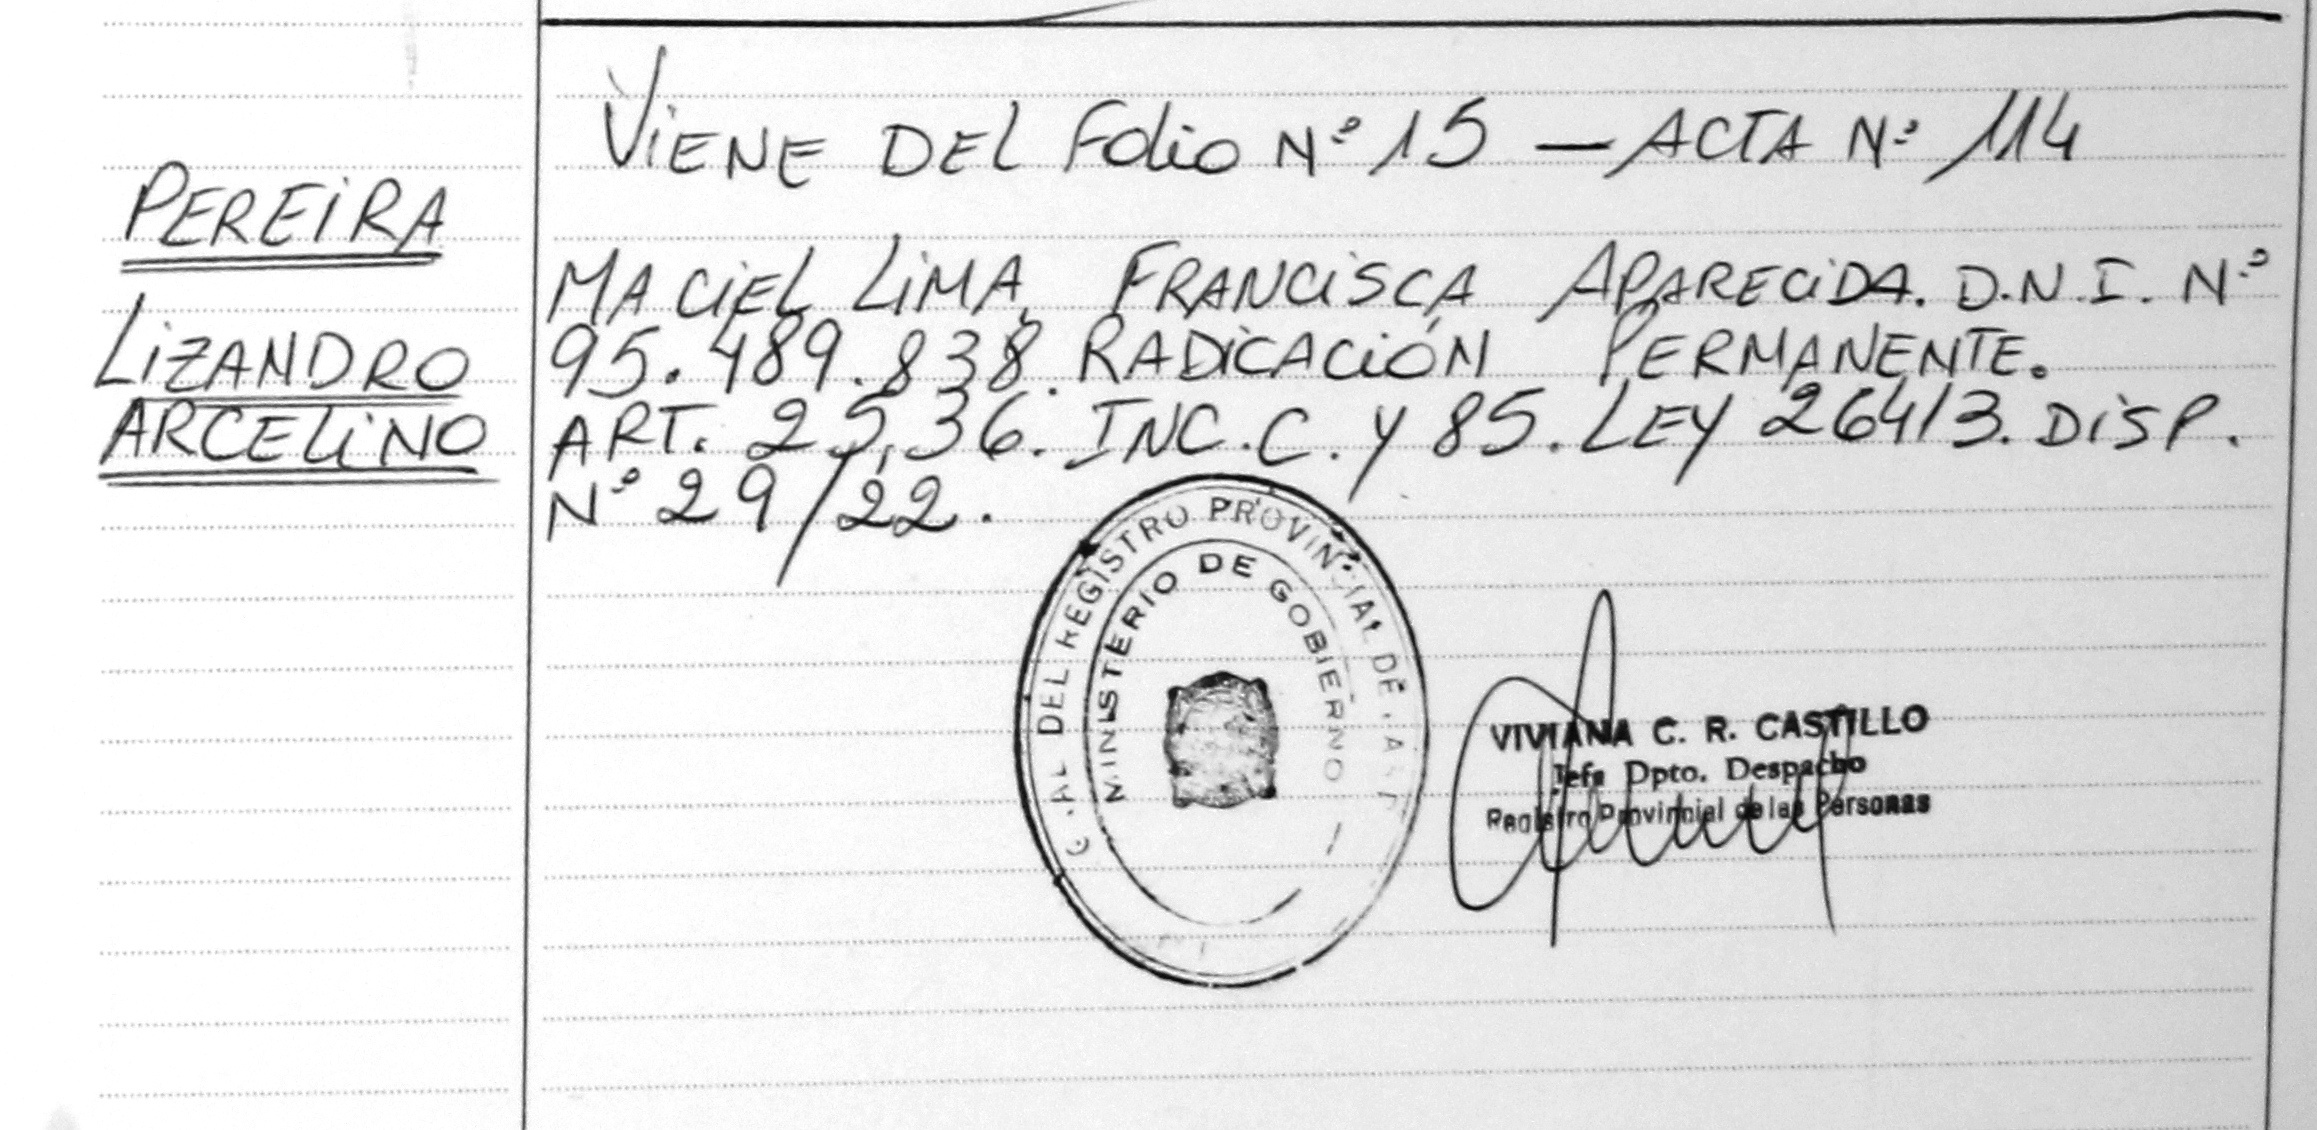 VIENE DEL Folio Nº 15 — ACTA Nº 114
PEREIRA
LIZANDRO
ARCELINO
MACIEL LIMA, FRANCISCA APARECIDA. D.N.I. Nº
95.489.838. RADICACIÓN PERMANENTE.
ART. 25, 36. INC. C. Y 85. LEY 26413. DISP.
Nº 29/22.
DEL REGISTRO PROVINCIAL DE
MINISTERIO DE GOBIERNO
VIVIANA C. R. CASTILLO
Jefa Dpto. Despacho
Registro Provincial de las Personas